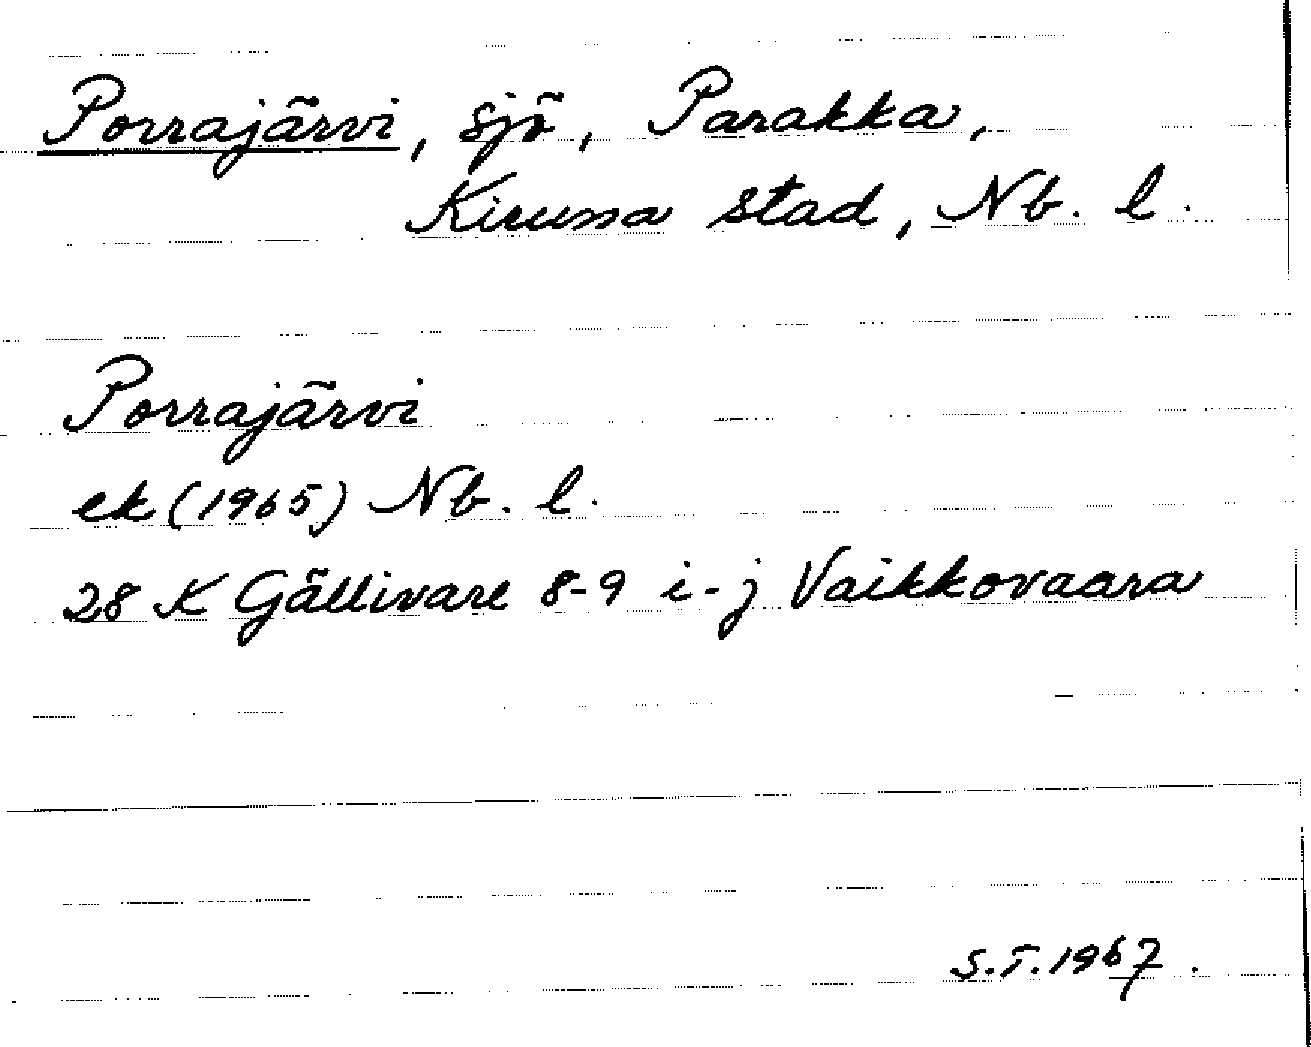 Porrajärvi, sjö, Parakka,
Kiruna stad, Nb. l.
Porrajärvi
ek (1965) Nb. l.
28 K Gällivare 8-9 i-j Vaikkovaara
S.T. 1967.